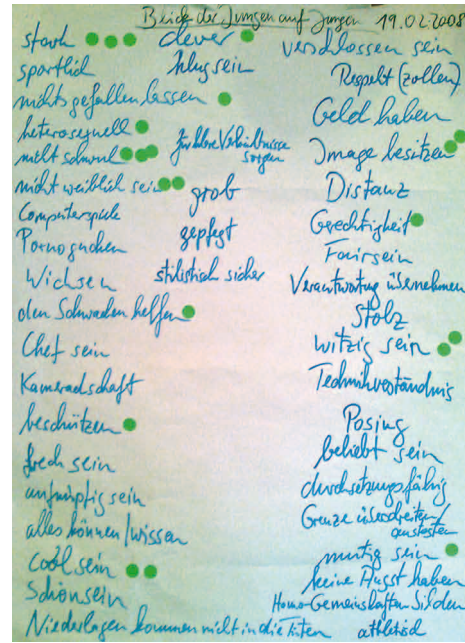 Blick der Jungen auf Jungen 19.02.2008
stark
sportlich
nichts gefallen lassen
heterosexuell
nicht schwul
nicht weiblich sein
Computerspiele
Pornos gucken
Wichsen
den Schwachen helfen
Chef sein
Kameradschaft
beschützen
frech sein
aufmüpfig sein
alles können/wissen
cool sein
Schönsein
Niederlagen kommen nicht in die Tüten
clever
klug sein
für klare Verhältnisse
sorgen
grob
gepflegt
stilistisch sicher
verschlossen sein
Respekt (zollen)
Geld haben
Image besitzen
Distanz
Gerechtigkeit
Fairsein
Verantwortung übernehmen
Stolz
witzig sein
Technikverständnis
Posing
beliebt sein
durchsetzungsfähig
Grenze überschreiten/
austesten
mutig sein
keine Angst haben
Homo-Gemeinschaften bilden
athletisch